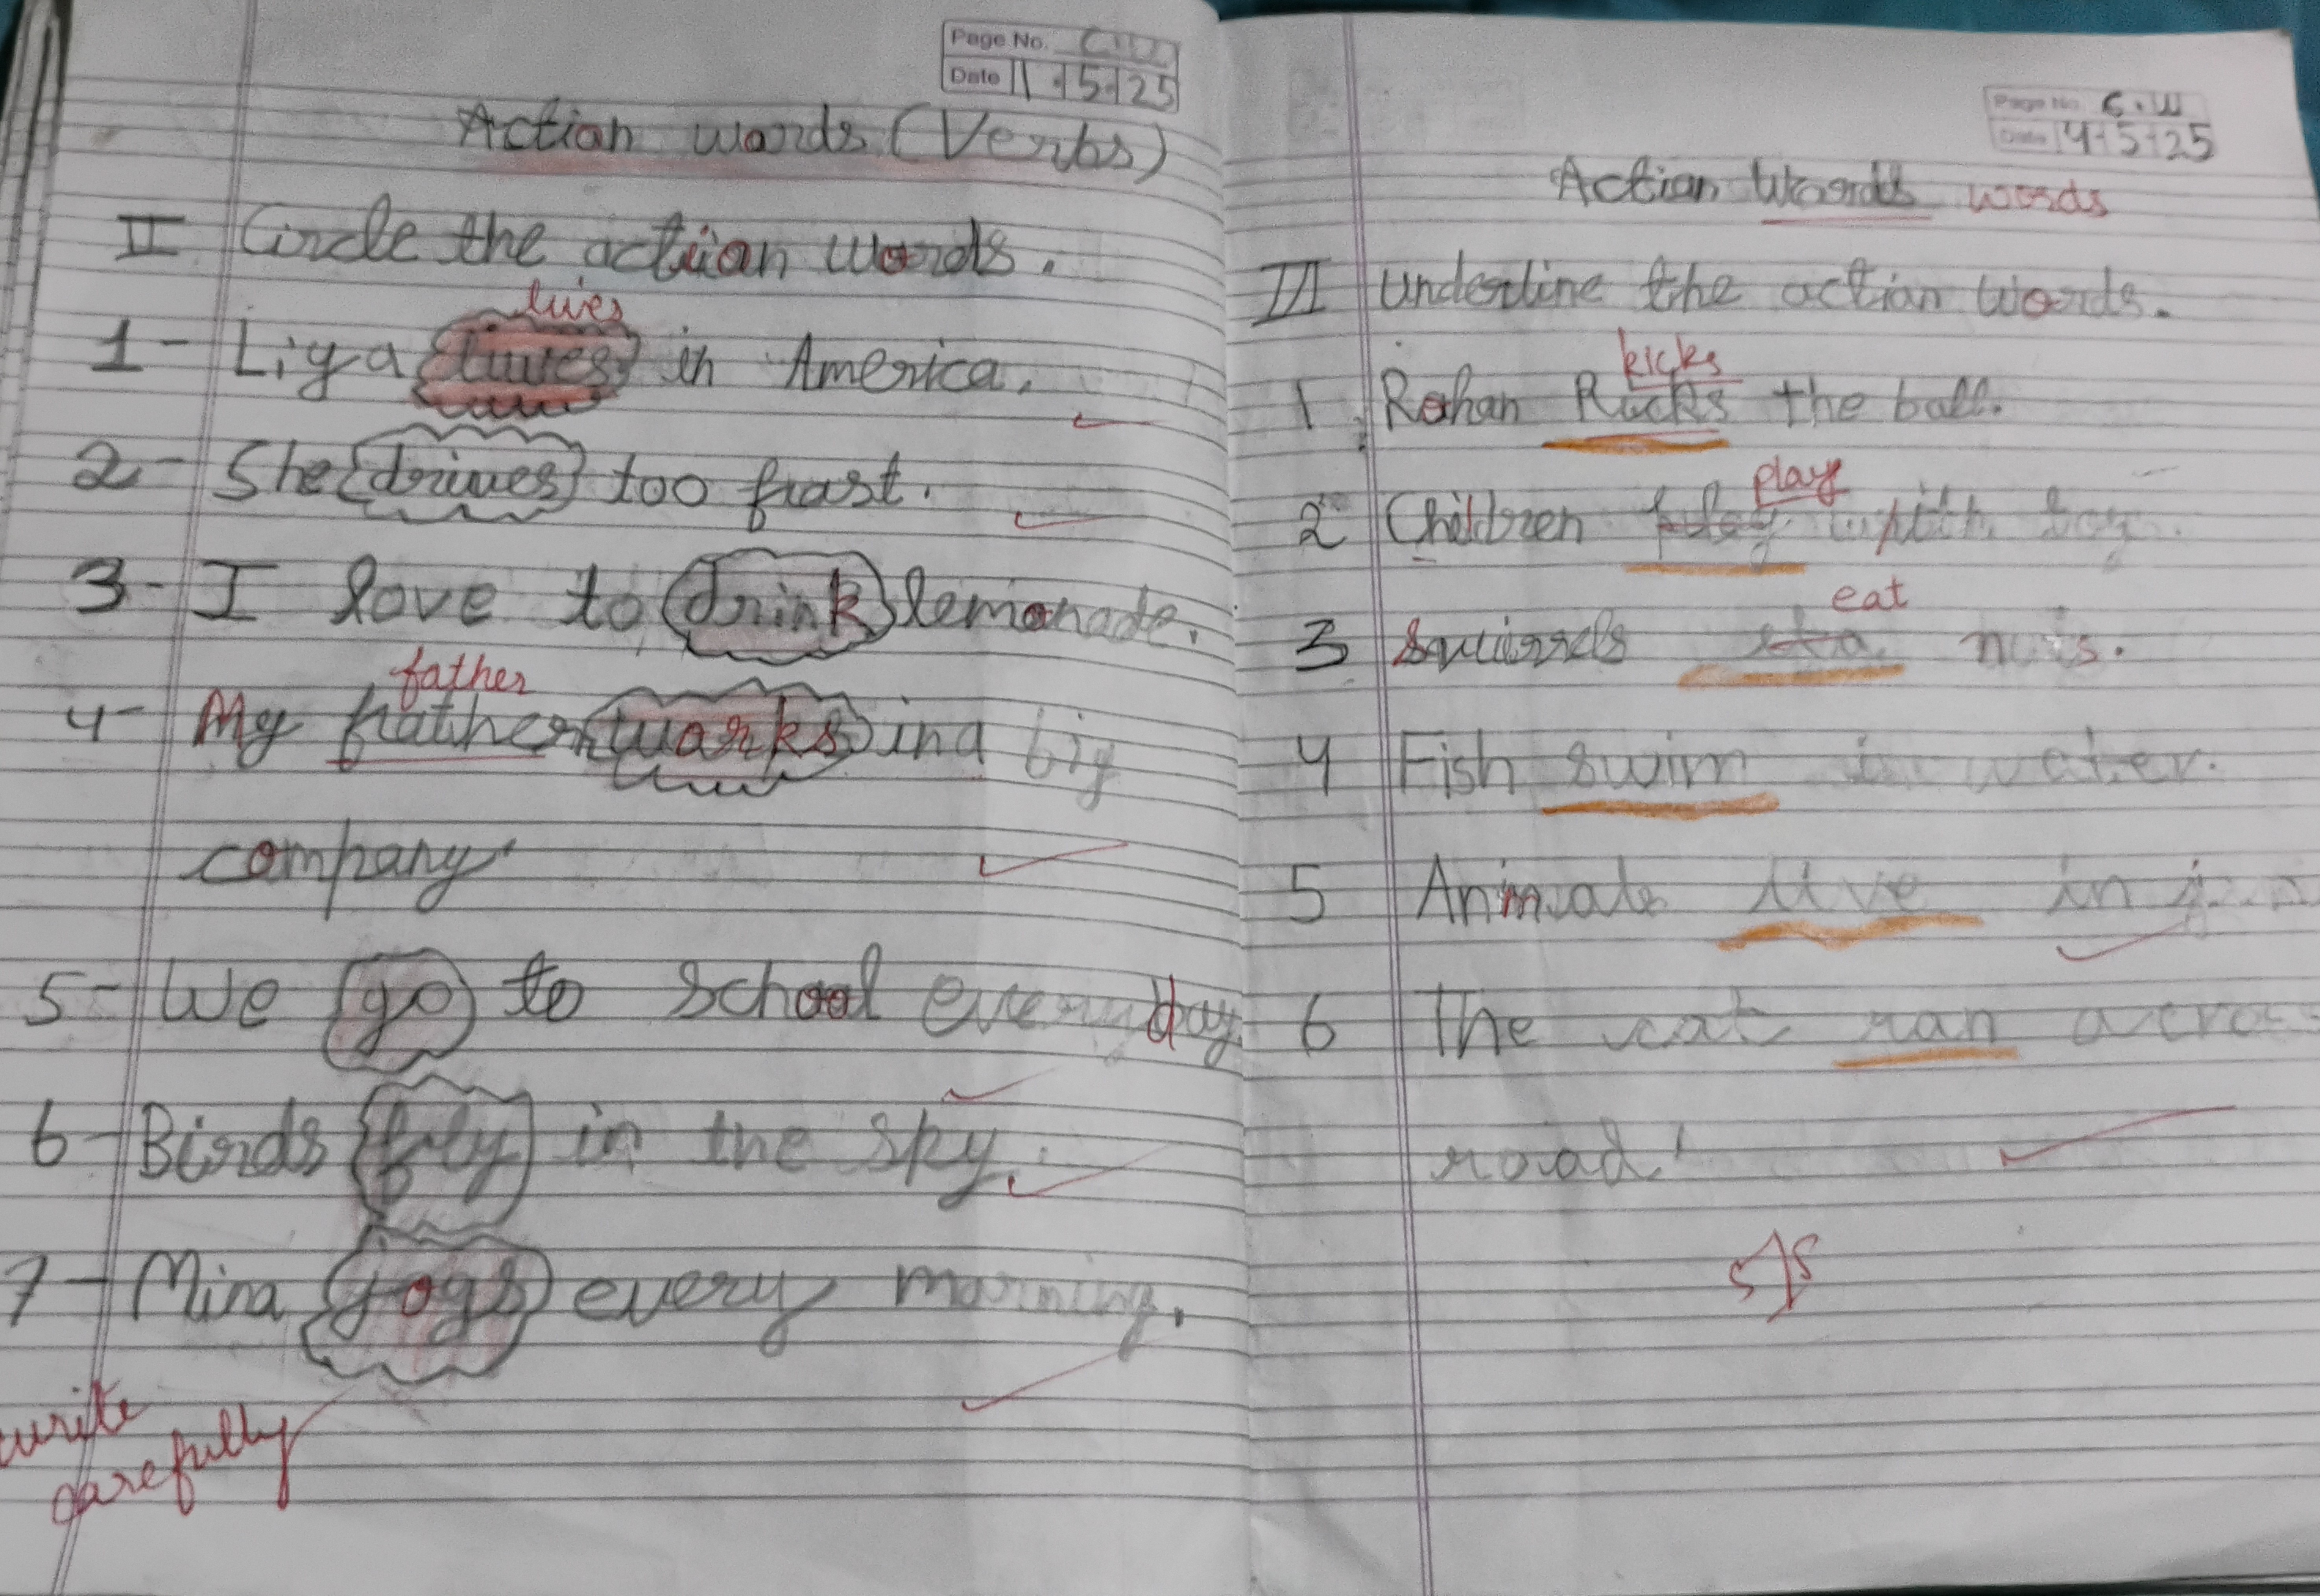 Page No. C.W
Date 11.5.25
Action words (Verbs)
II Circle the action words.
lives
1- Liya lives in America.
2- She drives too frast.
3- I love to drink lemonade.
father
4- My frather works in a big
company.
5- We go to school everyday
6- Birds frly in the spy.
7- Mina jogs every morning.
write
carefully
Page No. C.W
Date 14.5.25
Action Words words
III underline the action words.
kicks
1. Rohan Rucks the ball.
play
2 Children play with toy.
eat
3 Squirrels nuts.
4 Fish swim in water.
5 Animals live in
6 The cat ran acros
road.